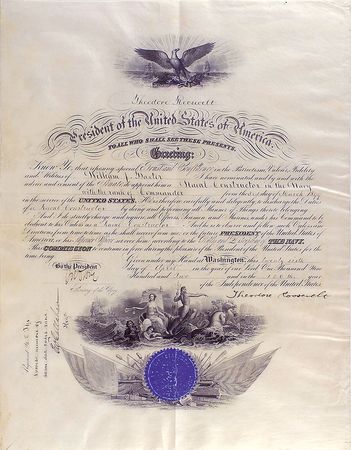 Theodore Roosevelt
President of the United States of America.
TO ALL WHO SHALL SEE THESE PRESENTS,
Greeting:
Know Ye, that reposing special Trust and Confidence in the Patriotism, Valor, Fidelity
and Abilities of William J. I have nominated and by and with the
advice and consent of the Senate do appoint him a Naval Constructor in the Navy
with the rank of Commander from the day of March
in the service of the UNITED STATES. He is therefore carefully and diligently to discharge the Duties
of a Naval Constructor by doing and performing all manner of things thereto belonging.
And I do strictly charge and require all Officers, Seamen and Marines under his Command to be
obedient to his Orders as a Naval Constructor. And he is to observe and follow such Orders and
Directions from time to time as he shall receive from me, or the future PRESIDENT of the United States of
America or his Superior Officer set over him, according to the Rules and Discipline of THE NAVY.
This COMMISSION to continue in force during the pleasure of the President of the United States for the
time being.
Given under my Hand at Washington, this
day of April in the year of our Lord One Thousand Nine
Hundred and Two and in the
of the Independence of the United States
By the President
Theodore Roosevelt